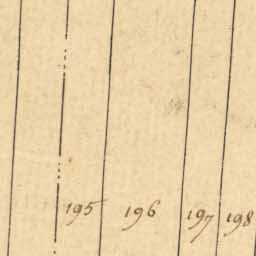 195 196 197 198